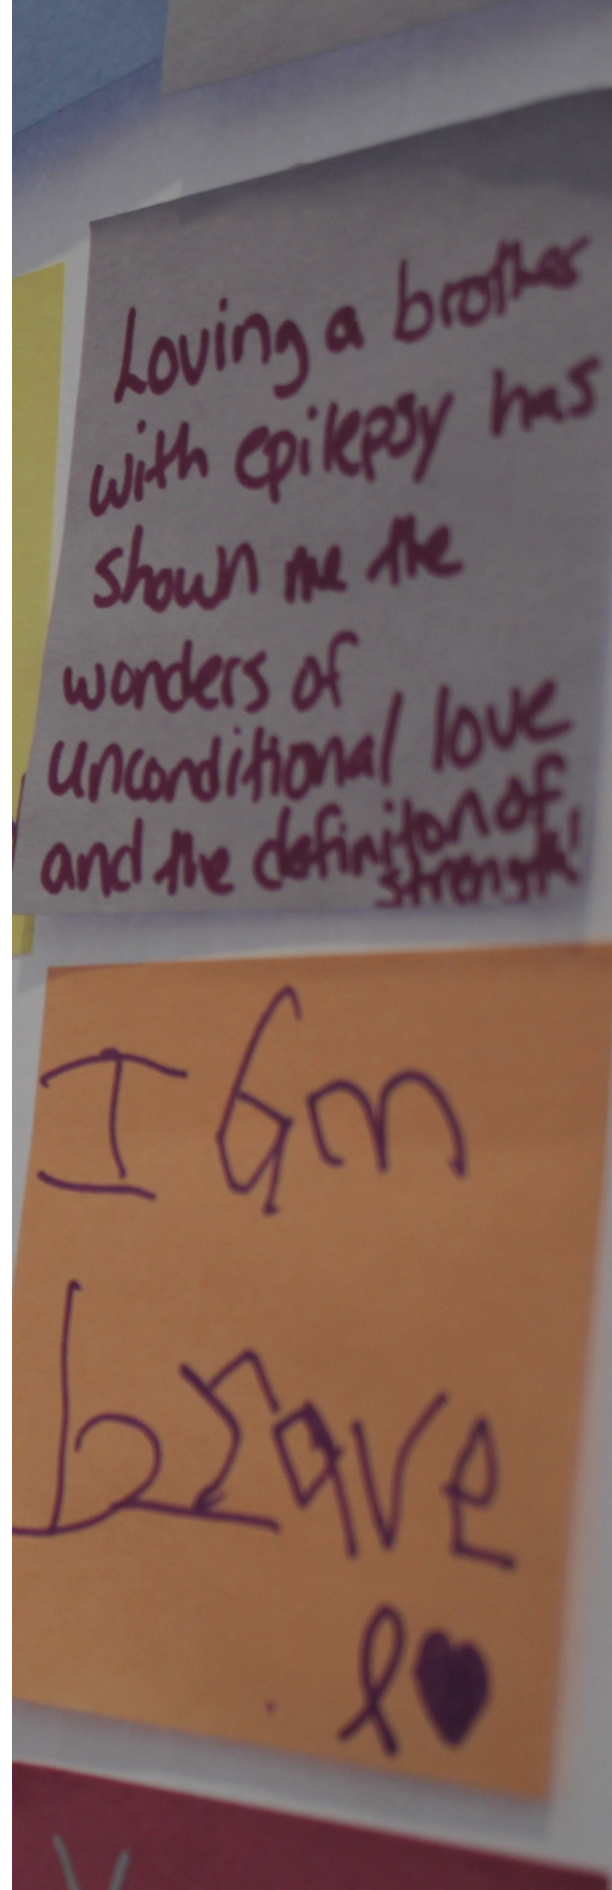 Loving a brother
with epilepsy has
shown me the
wonders of
unconditional love
and the definiton of
strength!
I am
brave